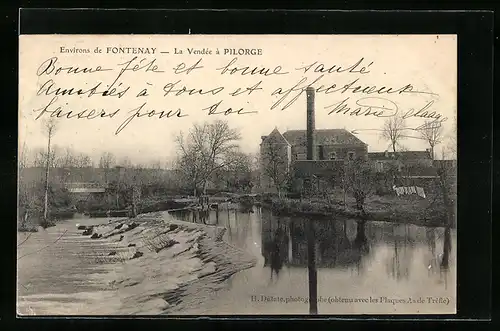 Environs de FONTENAY — La Vendée à PILORGE
Bonne fête et bonne santé
Amitiés à tous et affectueux
baisers pour toi Marie
H. Dolete, photographe (obtenu avec les Plaques As de Trèfle)